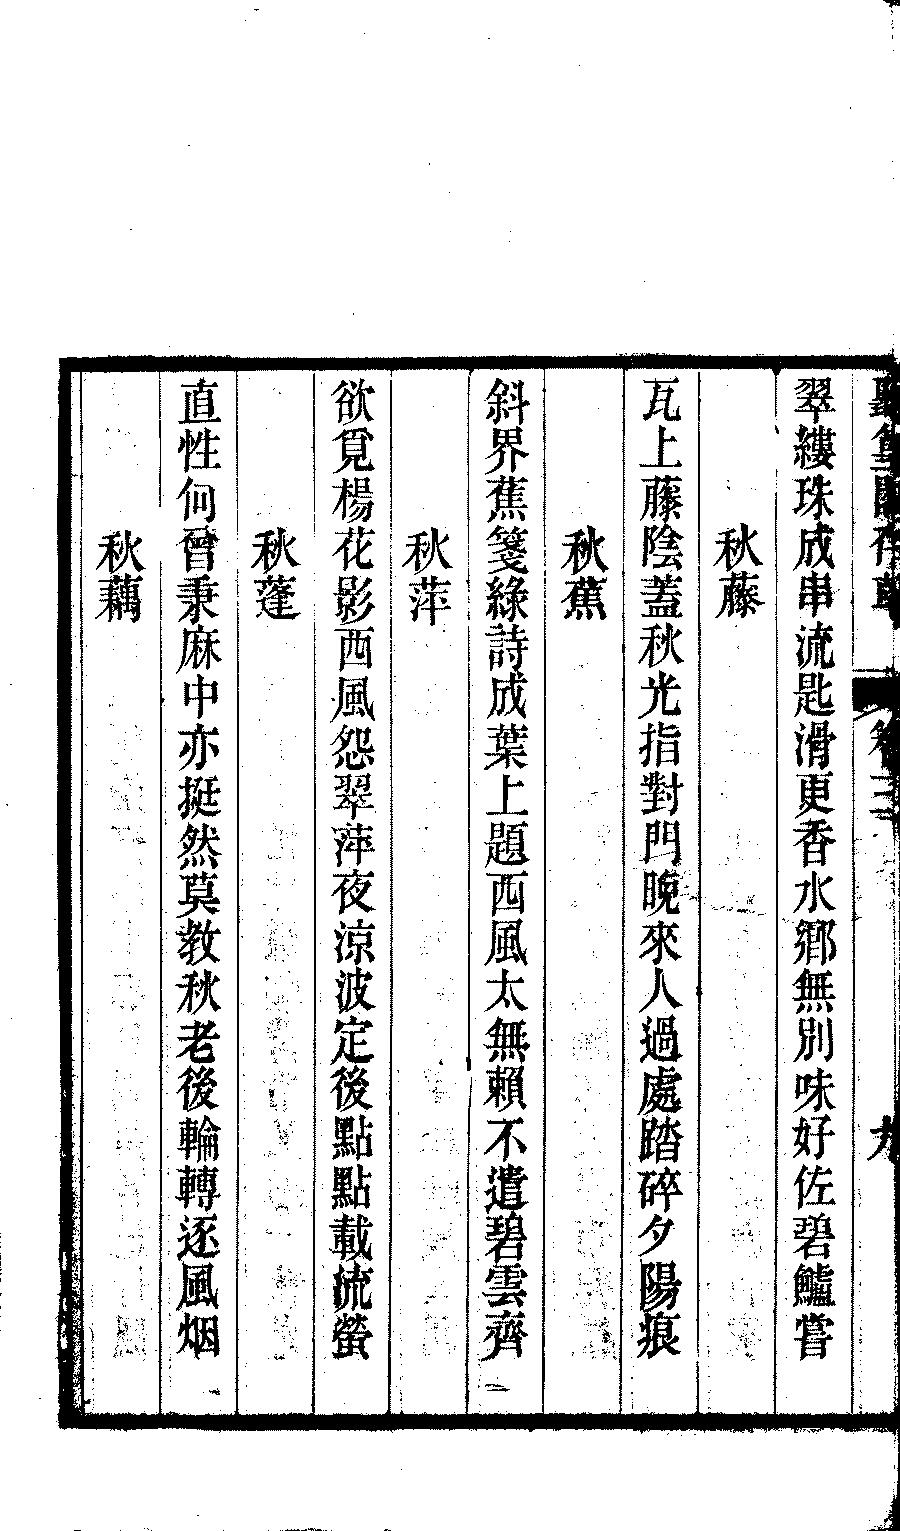 卷三
九
翠縷珠成串流匙滑更香水鄉無別味好佐碧鱸嘗
秋藤
瓦上藤陰蓋秋光指對門晚來人過處踏碎夕陽痕
秋蕉
斜界蕉箋綠詩成葉上題西風太無賴不遣碧雲齊
秋萍
欲覓楊花影西風怨翠萍夜涼波定後點點載流螢
秋蓬
直性何曾秉麻中亦挺然莫教秋老後輪轉逐風烟
秋藕